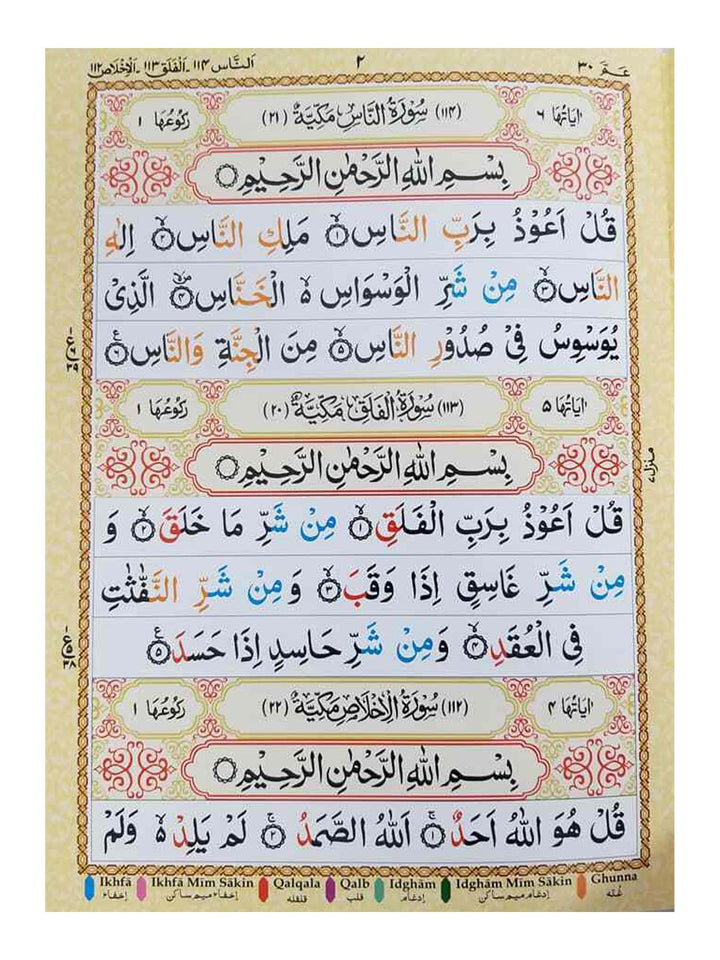 عَمَّ ٣٠
٢
اَلنَّاس ١١٤ -اَلْفَلَق ١١٣ -اَلْاِخْلَاص ١١٢
اٰيَاتُهَا ٦ (١١٤) سُوْرَةُ النَّاسِ مَكِّيَّةٌ (٢١) رُكُوْعُهَا ١
بِسْمِ اللّٰهِ الرَّحْمٰنِ الرَّحِيْمِ
قُلْ اَعُوْذُ بِرَبِّ النَّاسِ ۙ‏﴿١﴾ مَلِكِ النَّاسِ ۙ‏﴿٢﴾ اِلٰهِ
النَّاسِ ۙ‏﴿٣﴾ مِنْ شَرِّ الْوَسْوَاسِ ۙ۬ الْخَنَّاسِ ۪ۙ‏﴿٤﴾ الَّذِىْ
يُوَسْوِسُ فِىْ صُدُوْرِ النَّاسِ ۙ‏﴿٥﴾ مِنَ الْجِنَّةِ وَالنَّاسِ ﴿٦﴾ ع
اٰيَاتُهَا ٥ (١١٣) سُوْرَةُ الْفَلَقِ مَكِّيَّةٌ (٢٠) رُكُوْعُهَا ١
بِسْمِ اللّٰهِ الرَّحْمٰنِ الرَّحِيْمِ
قُلْ اَعُوْذُ بِرَبِّ الْفَلَقِ ۙ‏﴿١﴾ مِنْ شَرِّ مَا خَلَقَ ۙ‏﴿٢﴾ وَ
مِنْ شَرِّ غَاسِقٍ اِذَا وَقَبَ ۙ‏﴿٣﴾ وَمِنْ شَرِّ النَّفّٰثٰتِ
فِى الْعُقَدِ ۙ‏﴿٤﴾ وَمِنْ شَرِّ حَاسِدٍ اِذَا حَسَدَ ﴿٥﴾ ع
اٰيَاتُهَا ٤ (١١٢) سُوْرَةُ الْاِخْلَاصِ مَكِّيَّةٌ (٢٢) رُكُوْعُهَا ١
بِسْمِ اللّٰهِ الرَّحْمٰنِ الرَّحِيْمِ
قُلْ هُوَ اللّٰهُ اَحَدٌ ۚ‏﴿١﴾ اَللّٰهُ الصَّمَدُ ۚ‏﴿٢﴾ لَمْ يَلِدْ ۙ۬ وَلَمْ
منزل ٧
Ikhfā Ikhfā Mīm Sākin Qalqala Qalb Idghām Idghām Mīm Sākin Ghunna
إخفاء إخفاء ميم ساكن قلقله قلب إدغام إدغام ميم ساكن غُنّه